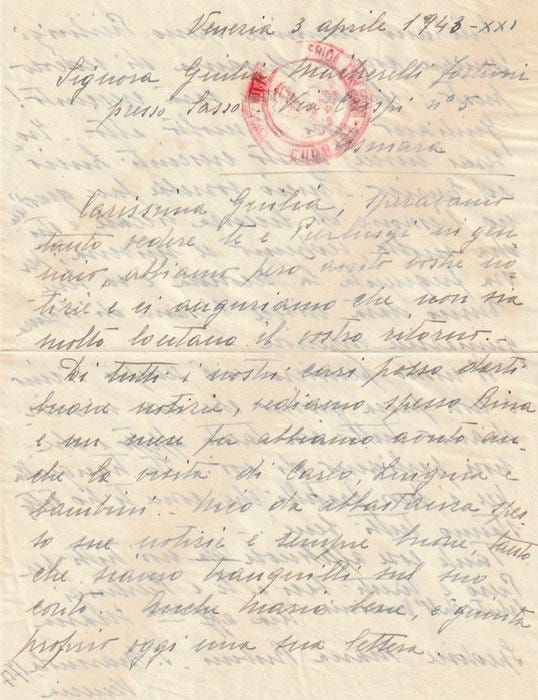 Venezia 3 aprile 1943-XXI
Signora Giulia Fortuni
presso Sasso Via Crispi n° 5
Asmara
Carissima Giulia, speravamo
tanto vedere te e Pierluigi in gen-
naio, abbiamo però avuto vostre no-
tizie e ci auguriamo che non sia
molto lontano il vostro ritorno.
Di tutti i nostri cari posso darti
buone notizie, vediamo spesso Rina
e un mese fa abbiamo avuto an-
che la visita di Carlo, e
bambini. Nico dà abbastanza spes-
so sue notizie e sempre buone, tanto
che siamo tranquilli sul suo
conto. Anche Maria bene, è giunta
proprio oggi una sua lettera.